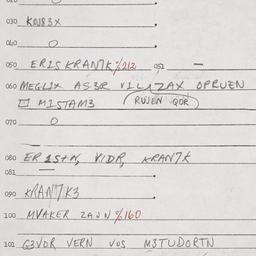 030 KOV83X
040 O
050 ERIS KRANTK %212 051 —
060 MEGLIX AS3R VILLZAX OPRUEN
MISTAM3 (RUVEN QOR)
070 O
080 ER1STN, VIDR, KRAN7K
081 —
090 KRAN7K3
100 MVAKER ZAVN %160
101 G3VOR VERN VOS M3TUDORTN